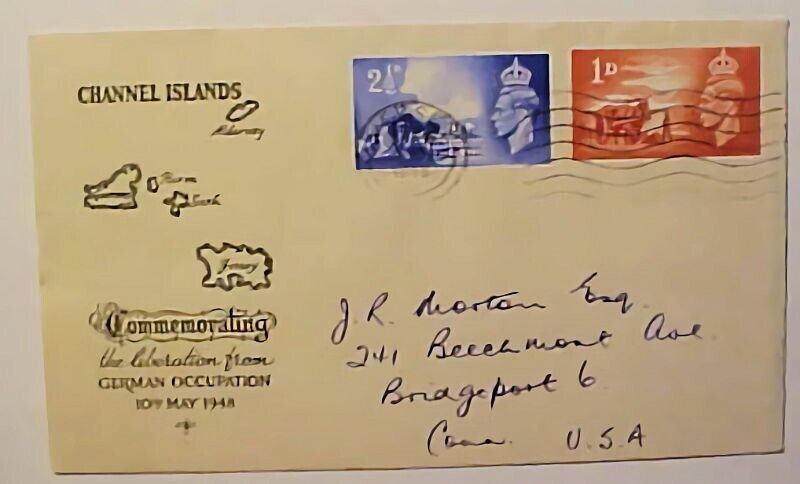 CHANNEL ISLANDS
Alderney
Herm
Sark
Jersey
Commemorating
the liberation from
GERMAN OCCUPATION
10TH MAY 1948
2½D
1D
J. R. Morton Esq.
241 Beechmont Ave.
Bridgeport 6
Conn. U.S.A